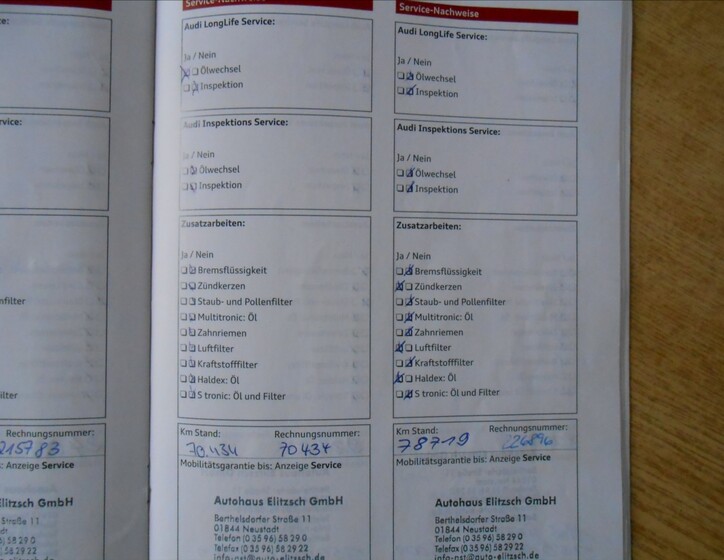 e:
vice:
nfilter
lter
Rechnungsnummer:
215783
s: Anzeige Service
Elitzsch GmbH
Straße 11
dt
96) 58 29 0
6) 58 29 22
Service-Nachweise
Audi LongLife Service:
Ja / Nein
Ölwechsel
Inspektion
Audi Inspektions Service:
Ja / Nein
Ölwechsel
Inspektion
Zusatzarbeiten:
Ja / Nein
Bremsflüssigkeit
Zündkerzen
Staub- und Pollenfilter
Multitronic: Öl
Zahnriemen
Luftfilter
Kraftstofffilter
Haldex: Öl
S tronic: Öl und Filter
Km Stand: Rechnungsnummer:
70.434 70434
Mobilitätsgarantie bis: Anzeige Service
Autohaus Elitzsch GmbH
Berthelsdorfer Straße 11
01844 Neustadt
Telefon (0 35 96) 58 29 0
Telefax (0 35 96) 58 29 22
info-nst@auto-elitzsch.de
Service-Nachweise
Audi LongLife Service:
Ja / Nein
Ölwechsel
Inspektion
Audi Inspektions Service:
Ja / Nein
Ölwechsel
Inspektion
Zusatzarbeiten:
Ja / Nein
Bremsflüssigkeit
Zündkerzen
Staub- und Pollenfilter
Multitronic: Öl
Zahnriemen
Luftfilter
Kraftstofffilter
Haldex: Öl
S tronic: Öl und Filter
Km Stand: Rechnungsnummer:
78719 226896
Mobilitätsgarantie bis: Anzeige Service
Autohaus Elitzsch GmbH
Berthelsdorfer Straße 11
01844 Neustadt
Telefon (0 35 96) 58 29 0
Telefax (0 35 96) 58 29 22
info-nst@auto-elitzsch.de